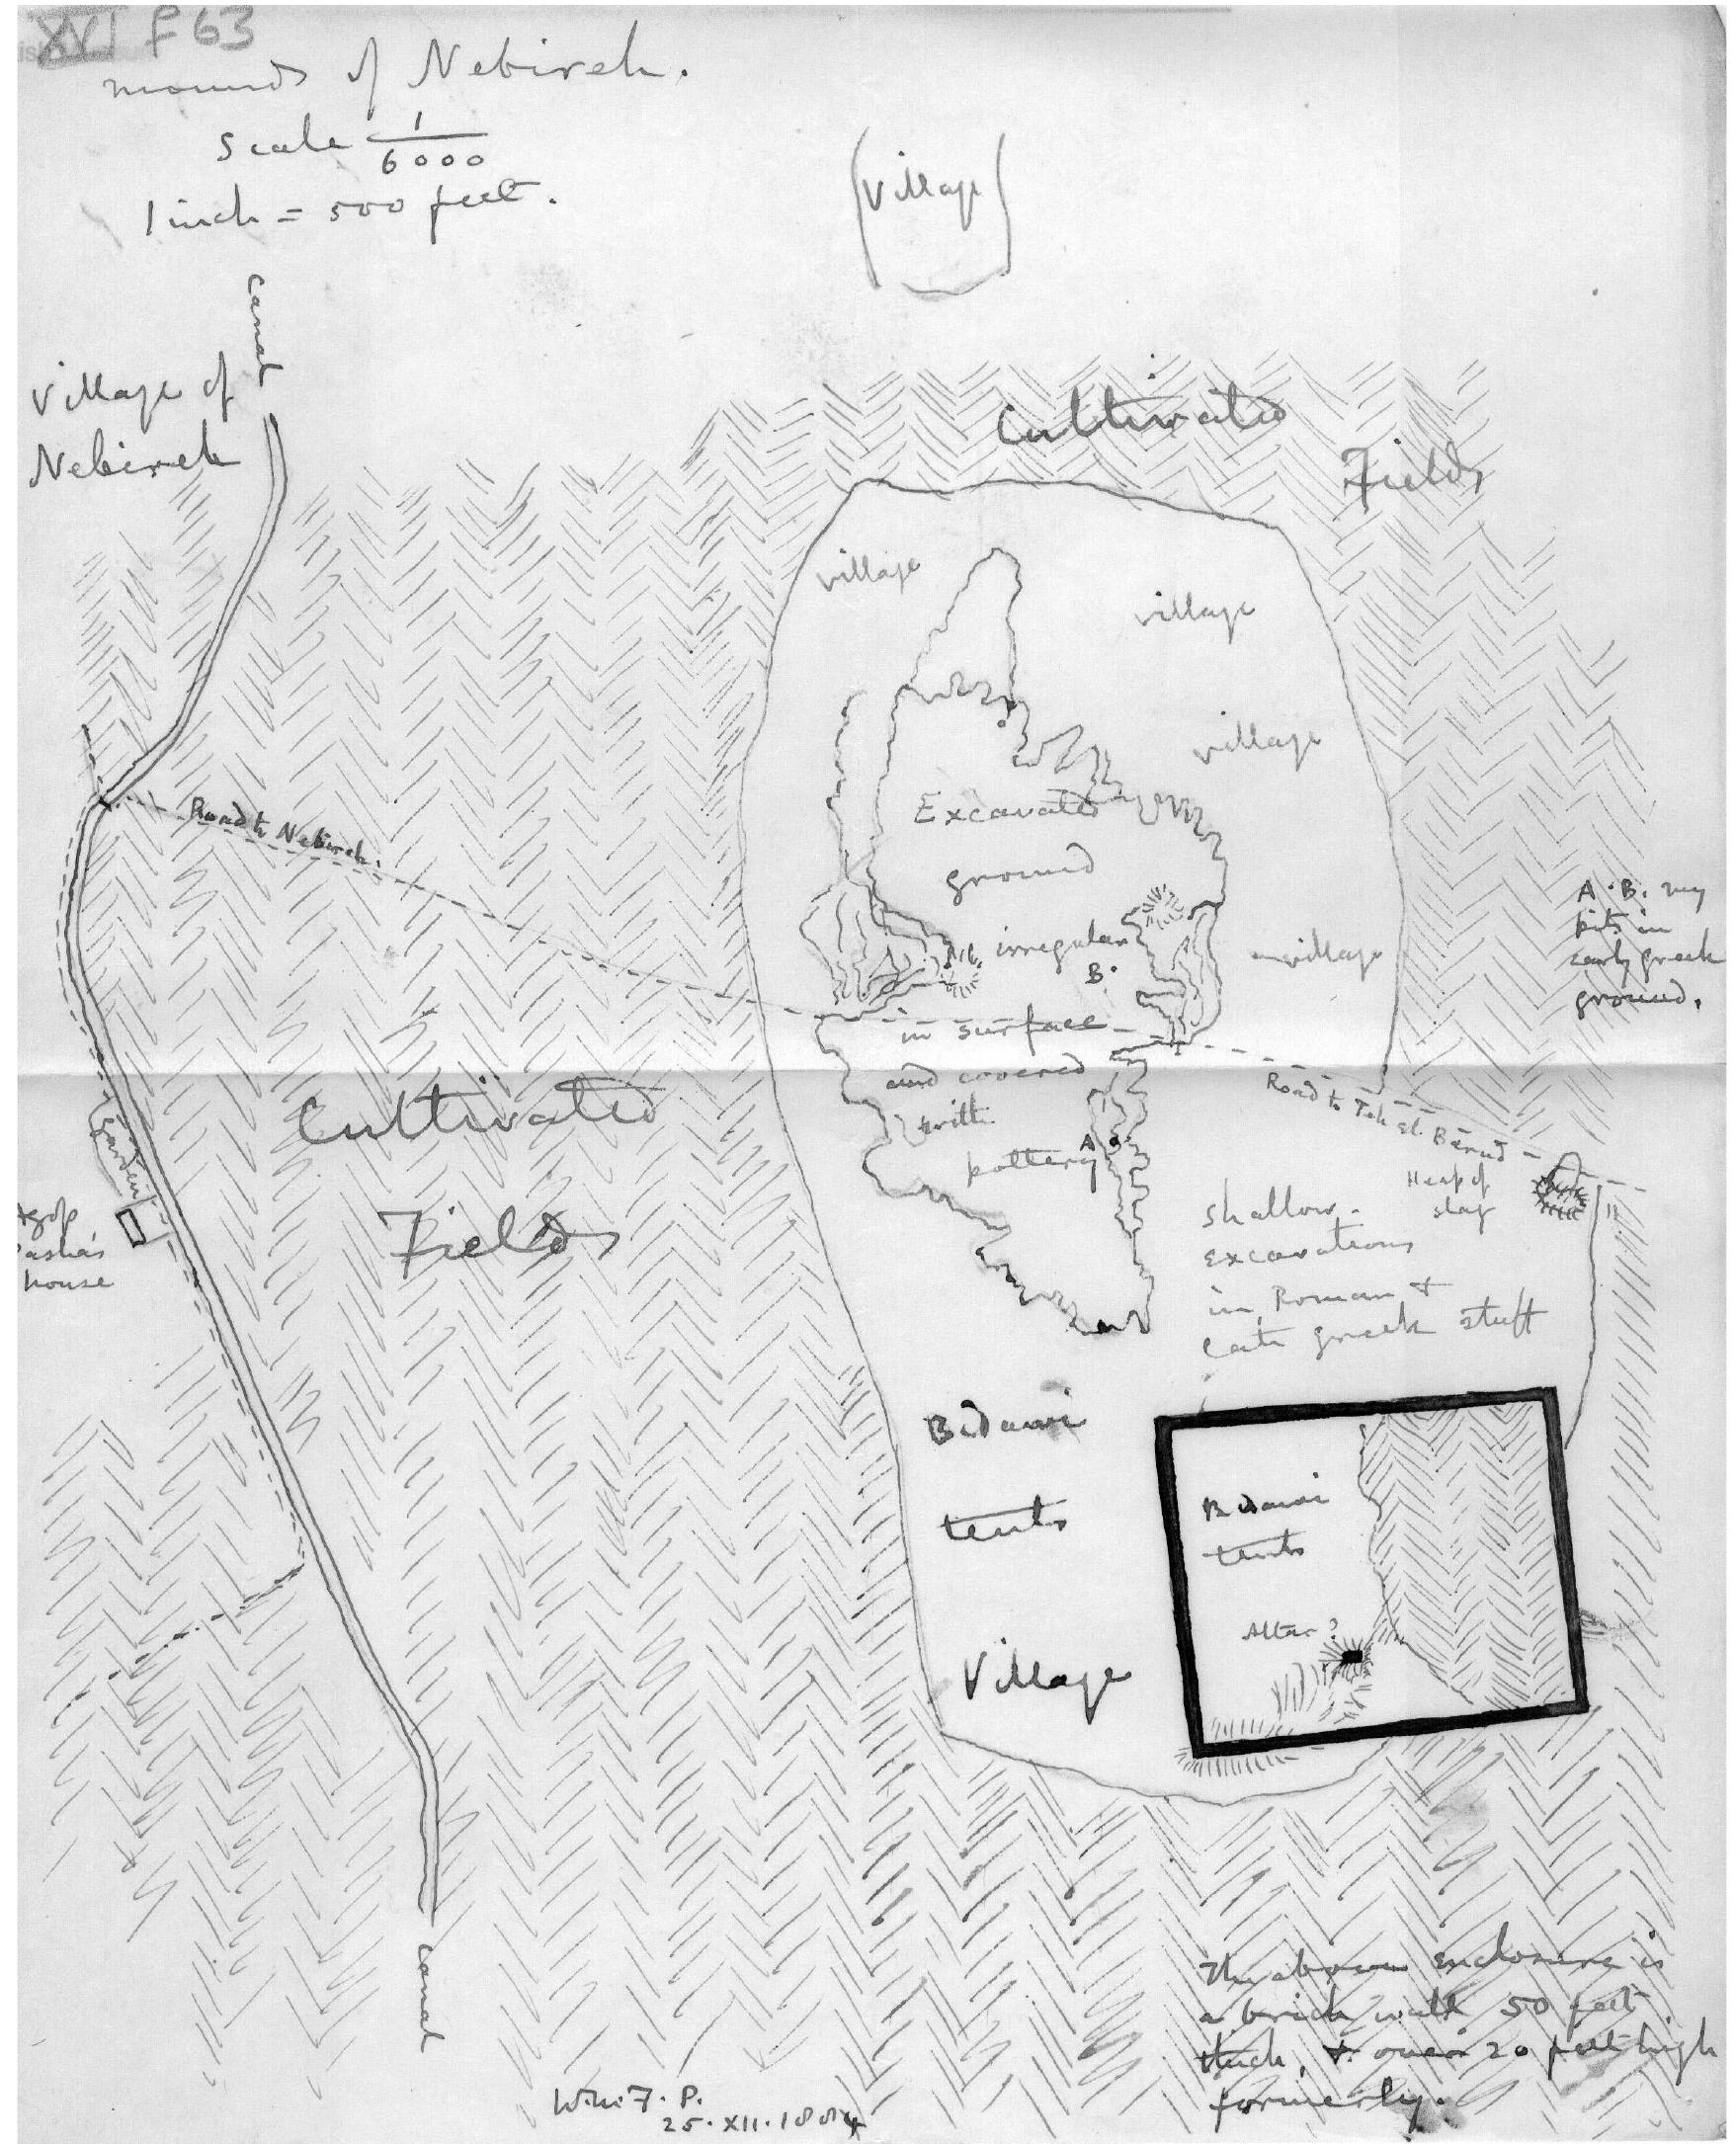 XVI f 63
mounds of Nebireh.
Scale 1/6000
1 inch = 500 feet.
(Village)
Canal
Village of
Nebireh
Cultivated
Fields
village
village
village
Excavated
ground
irregular
B.
village
in surface
and covered
with
pottery
A
Road to Nebireh.
A. B. my
pits in
early greek
ground.
Road to Teh el Barud
Heap of
slag
Cultivated
Fields
Garden
Pasha's
house
shallow
excavations
in Roman &
late greek stuff
Bedawi
tents
Bedawi
tents
Altar?
Village
The above enclosure is
a brick wall 50 feet
thick, & over 20 feet high
formerly.
Canal
W.M.F.P.
25.XII.1884